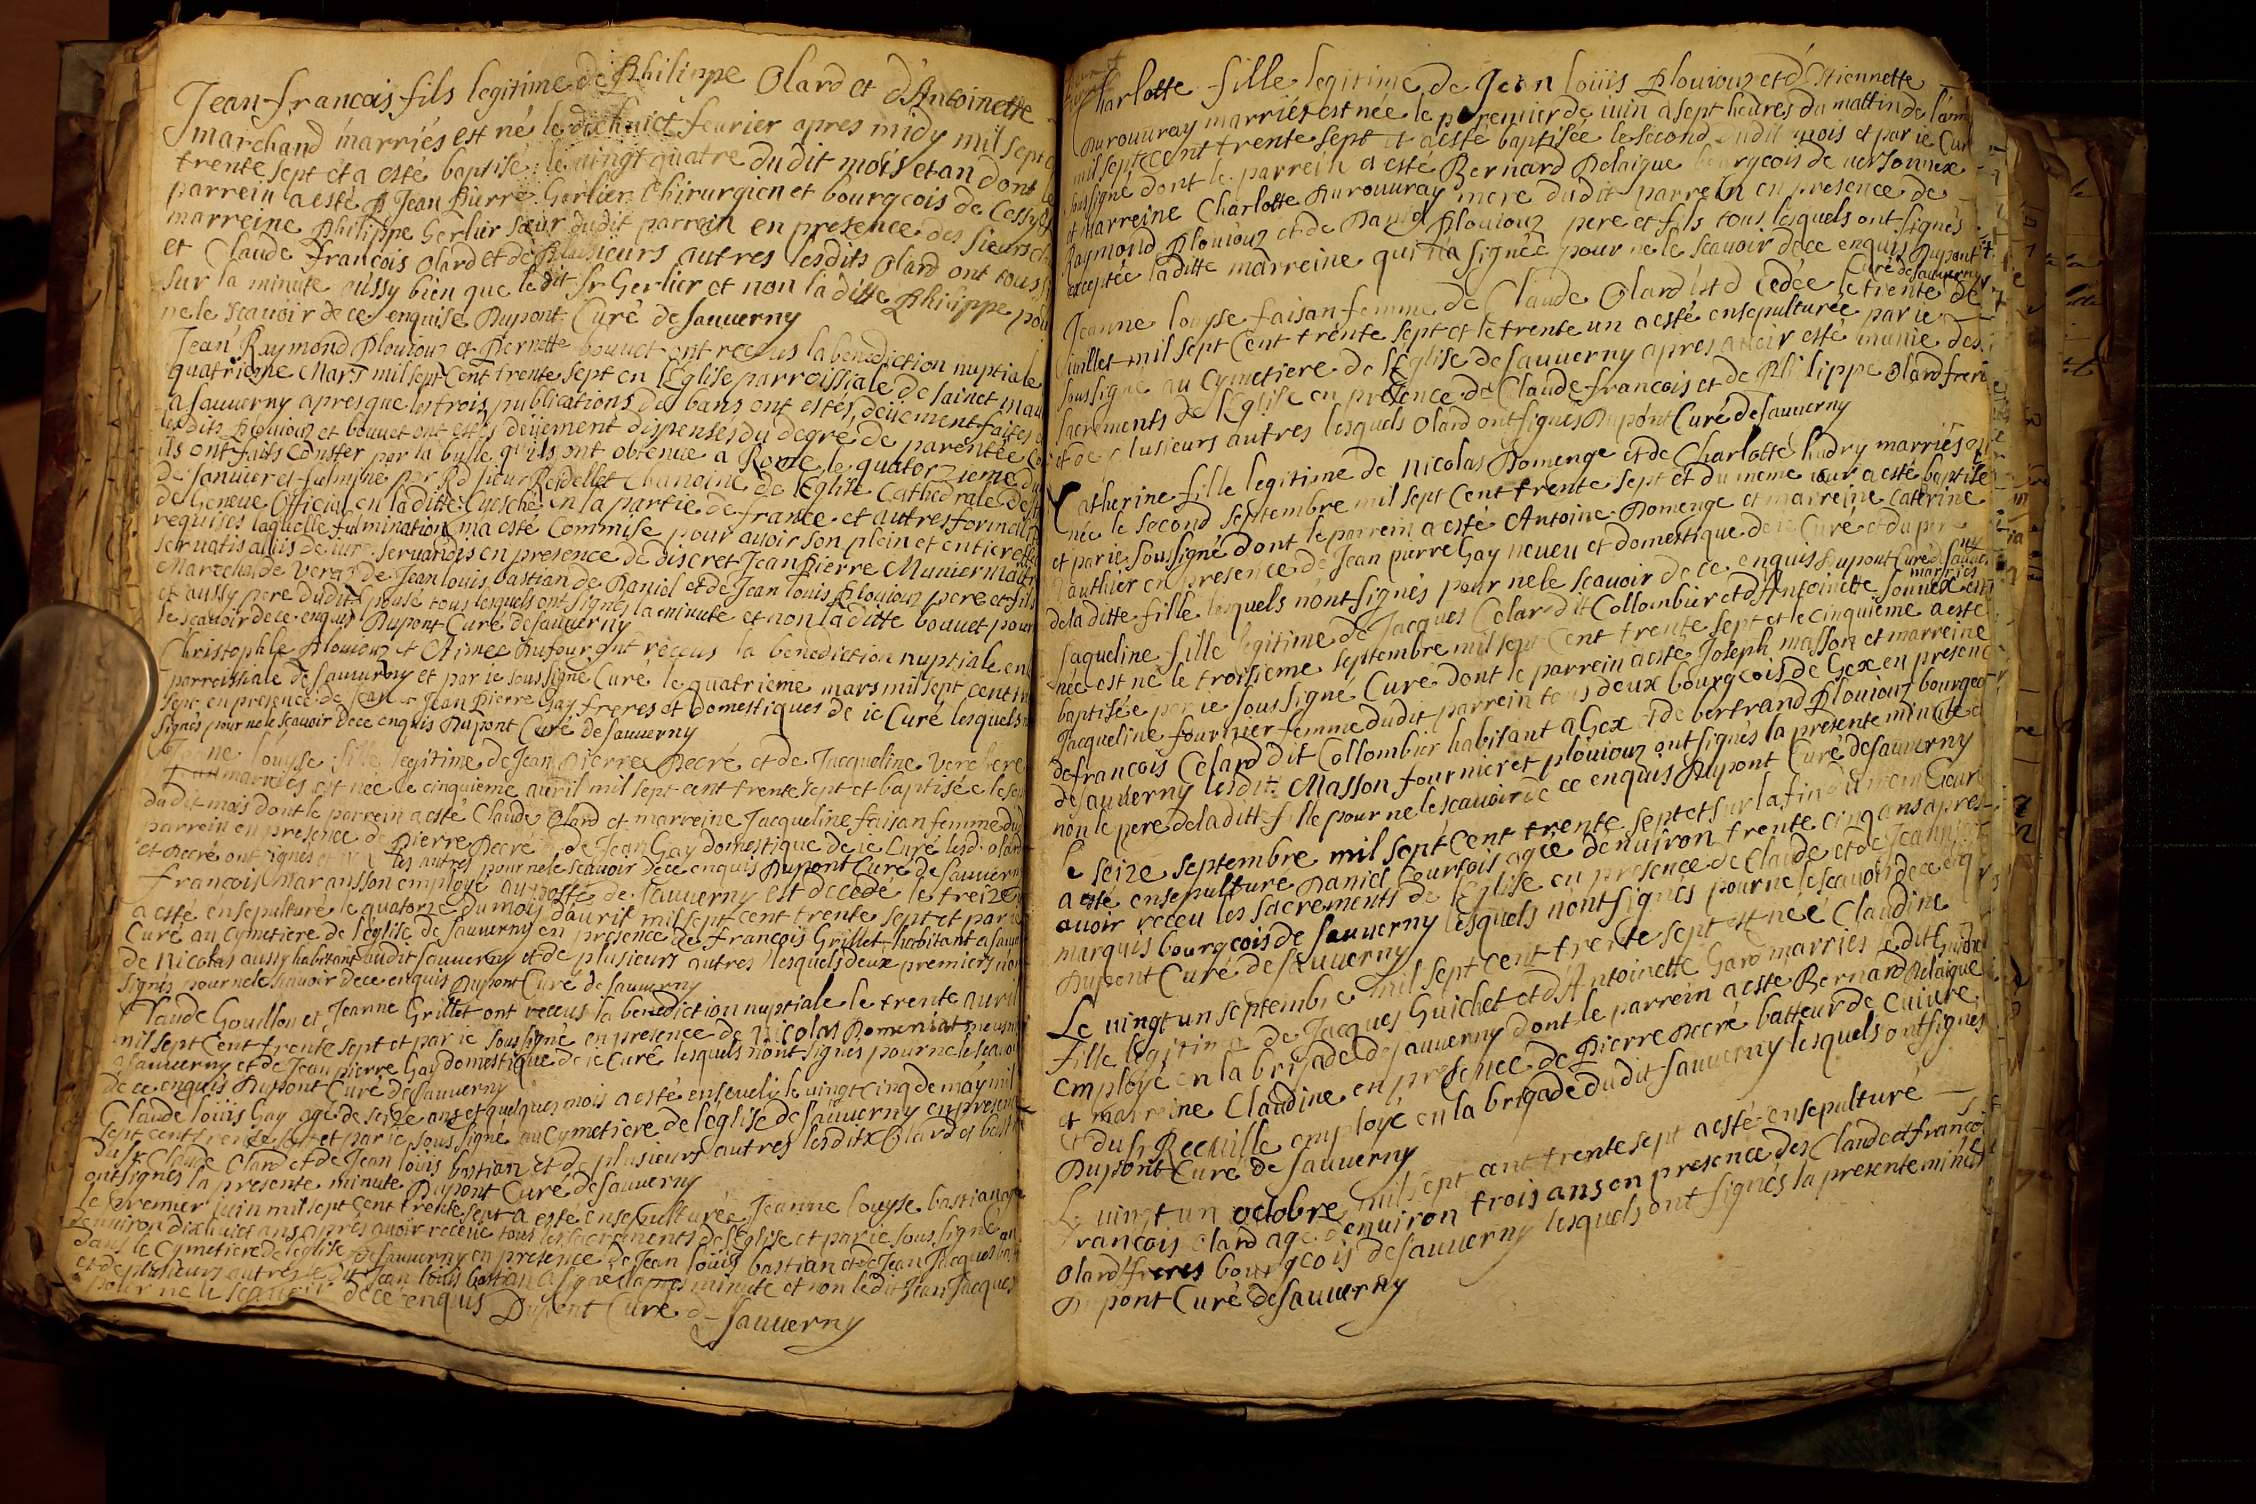 Jean francois fils legitime de Philippe Olard et d'Antoinette
marchand marriés est né le dixhuict feurier apres midy mil sept
trente sept et a esté baptisé le vingt quatre du dit mois et an dont le
parrein a esté Jean Pierre Gerlier Chirurgien et bourgeois de Cessy et
marreine Philippe Gerlier sœur dudit parrein en presence des sieurs
et Claude francois olard et de Plusieurs autres lesdits olard ont tous
sur la minute aussy bien que le dit Sr Gerlier et non la ditte Philippe pour
ne le scauoir de ce enquise Dupont Curé de Sauuerny
Jean Raymond Plouiouz et Pernette bouuet ont receus la benediction nuptiale
quatrieme Mars mil sept Cent trente sept en l'Eglise parroissiale de sainct
a sauuerny apres que les trois publications de bans ont estés deüement faites
lesdits Plouiouz et bouuet ont estés deüement dispensés du degré de parentée
ils ont faits conster par la bulle qu'ils ont obtenue a Rome le quatorzieme
de Januier et fulminée par Rd sieur Chanoine de l'Eglise Cathedrale de
de Geneue Official en laditte Euesché en la partie de france et autres
requises laquelle fulmination m'a esté commise pour auoir son plein et entier
seruatis aliis de iure seruandis en presence de discret Jean Pierre Munier
Marechal de de Jean louis bastian de Daniel et de Jean louis Plouiouz pere et fils
et aussy pere dudit Epousé tous lesquels ont signés la minute et non laditte bouuet pour
le scauoir de ce enquis Dupont Curé de Sauuerny
Christophle Plouiouz et Aimée Dufour ont receus la benediction nuptiale en
parroissiale de sauuerny et par ie soussigné Curé le quatrieme mars mil sept cent
sept en presence de Jean Pierre Gay freres et domestiques de ie Curé lesquels
signés pour ne le scauoir de ce enquis Dupont Curé de sauuerny
louyse fille legitime de Jean Pierre Decré et de Jacqueline
marriés est née le cinquieme auril mil sept cent trente sept et baptisée le
dudit mois dont le parrein a esté Claude Olard et marreine Jacqueline faisan femme du
parrein en presence de Pierre Decré de Jean Gay domestique de ie Curé lesdits
et Decré ont signés les autres pour ne le scauoir de ce enquis Dupont Curé de Sauuerny
francois Maransson employé au poste de sauuerny est decedé le treize
a esté ensepulturé le quatorze du mois d'auril mil sept cent trente sept et par ie
Curé au cymetiere de l'eglise de sauuerny en presence de francois Grillet habitant a
de Nicolas aussy habitant audit sauuerny et de plusieurs autres lesquels deux premiers
signés pour ne le scauoir de ce enquis Dupont Curé de Sauuerny
Claude Gouillon et Jeanne Grillet ont receus la benediction nuptiale le trente auril
mil sept cent trente sept et par ie soussigné en presence de Nicolas
a sauuerny et de Jean pierre Gay domestique de ie Curé lesquels n'ont signés pour ne le scauoir
de ce enquis Dupont Curé de Sauuerny
Claude louis Gay agé de seize ans et quelques mois a esté enseueli le vingt cinq de may mil
sept cent trente sept et par ie soussigné au Cymetiere de l'eglise de sauuerny en presence
du Sr Claude Olard et de Jean loüis bastian et de plusieurs autres lesdits Olard et
ont signés la presente minute Dupont Curé de Sauuerny
le premier juin mil sept cent trente sept a esté ensepulturée Jeanne louyse bastian
d'enuiron dixhuict ans apres auoir receue tous les sacrements de l'eglise et par ie soussigné
dans le Cymetiere de l'eglise de sauuerny en presence de Jean louis bastian et de Jean Jacques
et de plusieurs autres Jean louis bastian a signé la minute et non ledit Jean Jacques
pour ne le scauoir de ce enquis Dupont Curé de Sauuerny
Charlotte fille legitime de Jean loüis Plouiouz et d'Etiennette
Durouuray marriés est née le premier de iuin a sept heures du mattin de l'an
mil sept cent trente sept et a esté baptisée le second dudit mois et par ie Curé
soussigné dont le parrein a esté Bernard Delaigue bourgeois de uersonnex
et Marreine Charlotte Durouuray mere dudit parrein en presence de
Raymond Plouiouz et de Daniel Plouiouz pere et fils tous lesquels ont signés
exceptée laditte marreine qui n'a signée pour ne le scauoir de ce enquis Dupont
Curé de sauuerny
Jeanne louyse faisan femme de Claude Olard est decedée le trente de
Juillet mil sept Cent trente sept et le trente un a esté ensepulturée par ie
soussigné au Cymetiere de l'Eglise de sauuerny apres auoir esté munie des
sacrements de l'Eglise en presence de Claude francois et de Philippe Olard freres
et de plusieurs autres lesquels Olard ont signés Dupont Curé de Sauuerny
Catherine fille legitime de Nicolas Domenge et de Charlotte hudry marriés
née le second septembre mil sept cent trente sept et du meme iour a esté baptisée
et par ie soussigné dont le parrein a esté Antoine Domenge et marreine Catrine
Gauthier en presence de Jean pierre Gay neueu et domestique de ie Curé et du pere
de la ditte fille lesquels n'ont signés pour ne le scauoir de ce enquis Dupont Curé de Sauuerny
marriés
Jaqueline fille legitime de Jacques Celard dit Collombier et d'Antoinette Sonnex
née est né le troisieme septembre mil sept cent trente sept et le cinquieme a esté
baptisée par ie soussigné Curé dont le parrein a esté Joseph masson et marreine
Jacqueline fournier femme dudit parrein tous deux bourgeois de Gex en presence
de francois Celard dit Collombier habitant a Gex et de bertrand Plouiouz bourgeois
de sauuerny lesdits Masson fournier et plouiouz ont signés la presente minute et
non le pere de laditte fille pour ne le scauoir de ce enquis Dupont Curé de sauuerny
le seize septembre mil sept Cent trente sept et sur la fin du meme iour
a esté ensepulturé Daniel Courtois agée d'enuiron trente cinq ans apres
auoir receu les sacrements de l'Eglise en presence de Claude et de Jean
marquis bourgeois de sauuerny lesquels n'ont signés pour ne le scauoir de ce
Dupont Curé de Sauuerny
Le vingt un septembre mil sept cent trente sept est née Claudine
fille legitime de Jacques Guichet et d'Antoinette Gard marriés le dit Guichet
employé en la brigade de sauuerny dont le parrein a esté Bernard Delaigue
et marreine Claudine en presence de Pierre Decré batteur de Cuiure
et du Sr Recuille employé en la brigade du dit sauuerny lesquels ont signés
Dupont Curé de Sauuerny
Le vingt un octobre mil sept cent trente sept a esté ensepulturé
francois Olard agé d'enuiron trois ans en presence des Claude et francois
Olard freres bourgeois de sauuerny lesquels ont signés la presente minute
Dupont Curé de Sauuerny